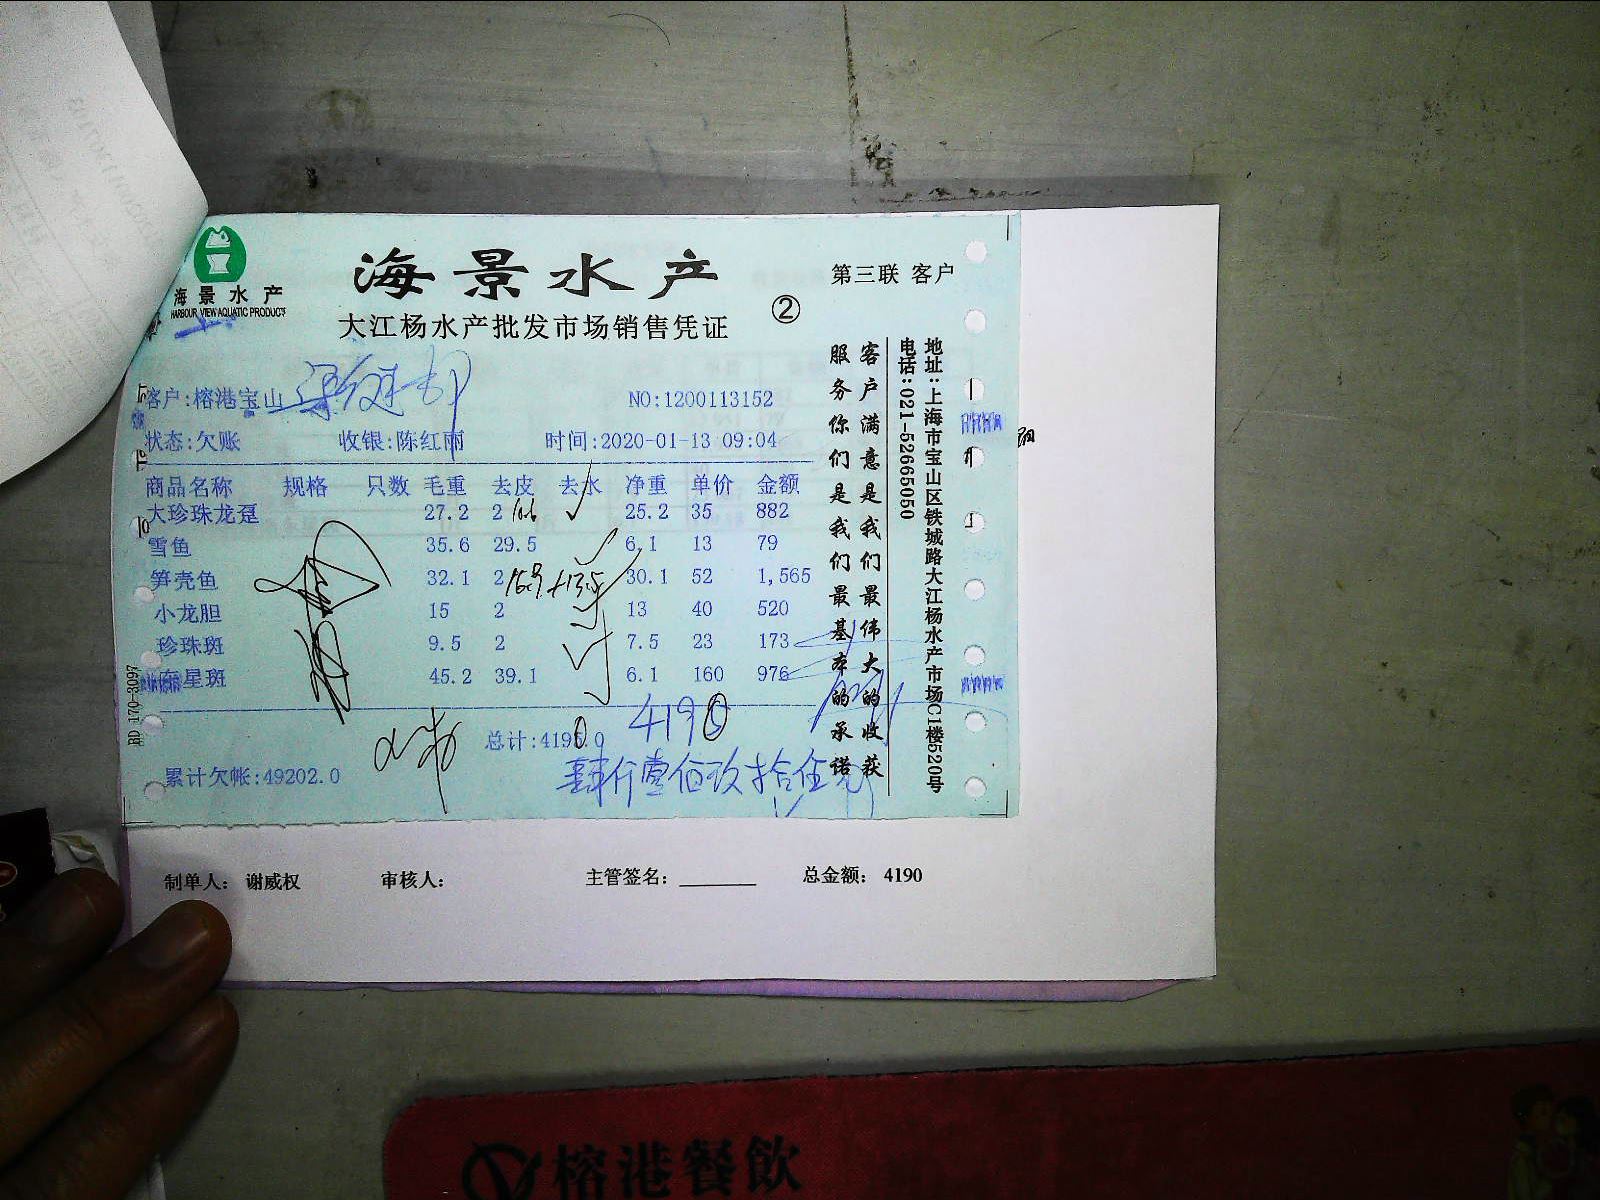 海景水产
HARBOUR VIEW AQUATIC PRODUCTS
海景水产
第三联 客户
②
大江杨水产批发市场销售凭证
客户:榕港宝山
NO:1200113152
状态:欠账 收银:陈红丽 时间:2020-01-13 09:04
商品名称 规格 只数 毛重 去皮 去水 净重 单价 金额
大珍珠龙趸 27.2 2 25.2 35 882
雪鱼 35.6 29.5 6.1 13 79
笋壳鱼 32.1 2 30.1 52 1,565
小龙胆 15 2 13 40 520
珍珠斑 9.5 2 7.5 23 173
东星斑 45.2 39.1 6.1 160 976
4190
总计:4195.0
累计欠帐:49202.0
肆仟壹佰玖拾伍元
客户满意是我们最伟大的收获
服务你们是我们最基本的承诺
地址:上海市宝山区铁城路大江杨水产市场C1楼520号
电话:021-52665050
BD 170-3097
制单人: 谢威权 审核人: 主管签名: 总金额: 4190
榕港餐飲